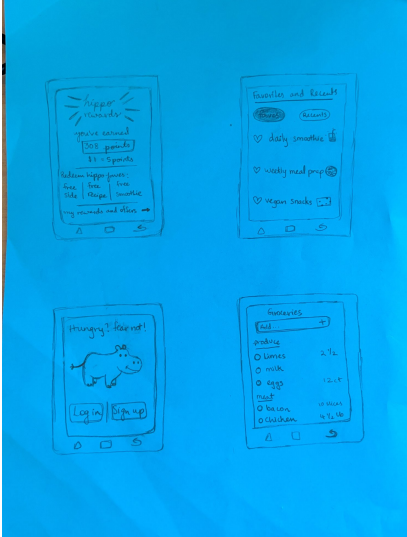 hippo
rewards
you've earned
308 points
$1 = 5 points
Redeem hippo faves:
free free free
side Recipe smoothie
my rewards and offers →
Favorites and Recents
Recents
♡ daily smoothie
♡ weekly meal prep
♡ vegan snacks
Hungry? fear not!
Log in Sign up
Groceries
Add +
produce
limes 2 1/2
milk
eggs
meat
bacon
chicken 4 1/2 lb